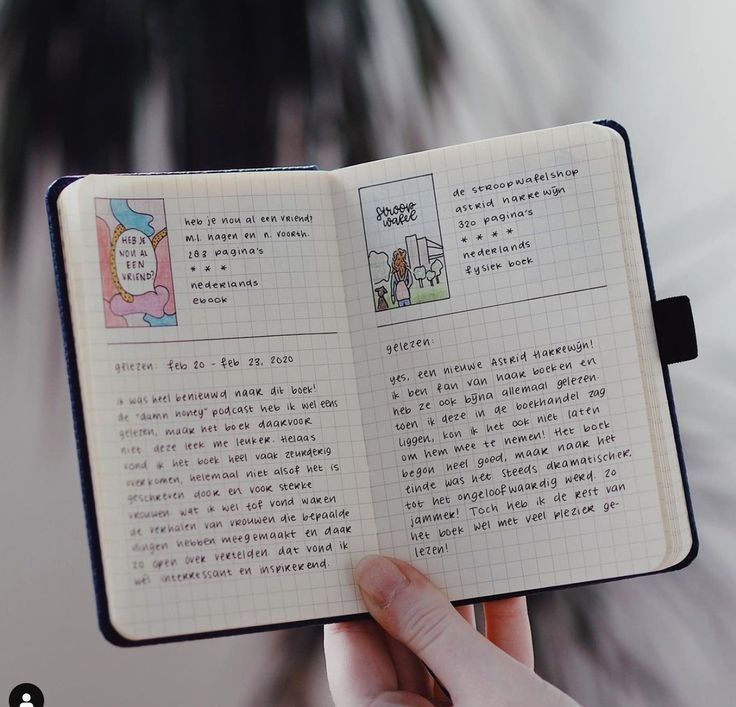 HEB JE
NOU AL
EEN
VRIEND?
heb je nou al een vriend?
m.l. hagen en n. voorth.
283 pagina's
* * *
nederlands
ebook
gelezen: feb 20 - feb 23, 2020
ik was heel benieuwd naar dit boek!
de "damn honey" podcast heb ik wel eens
gelezen, maar het boek daarvoor
niet deze leek me leuker. Helaas
vond ik het boek heel vaak zeurderig
overkomen, helemaal niet alsof het is
geschreven door en voor sterke
vrouwen. wat ik wel tof vond waren
de verhalen van vrouwen die bepaalde
dingen hebben meegemaakt en daar
zo open over vertelden. dat vond ik
wél interessant en inspirerend.
stroop
wafel
de stroopwafelshop
astrid harrewijn
320 pagina's
* * * *
nederlands
fysiek boek
gelezen:
yes, een nieuwe Astrid Harrewijn!
ik ben fan van haar boeken en
heb ze ook bijna allemaal gelezen.
toen ik deze in de boekhandel zag
liggen, kon ik het ook niet laten
om hem mee te nemen! Het boek
begon heel goed, maar naar het
einde was het steeds dramatischer,
tot het ongeloofwaardig werd. zo
jammer! Toch heb ik de rest van
het boek wel met veel plezier ge-
lezen!